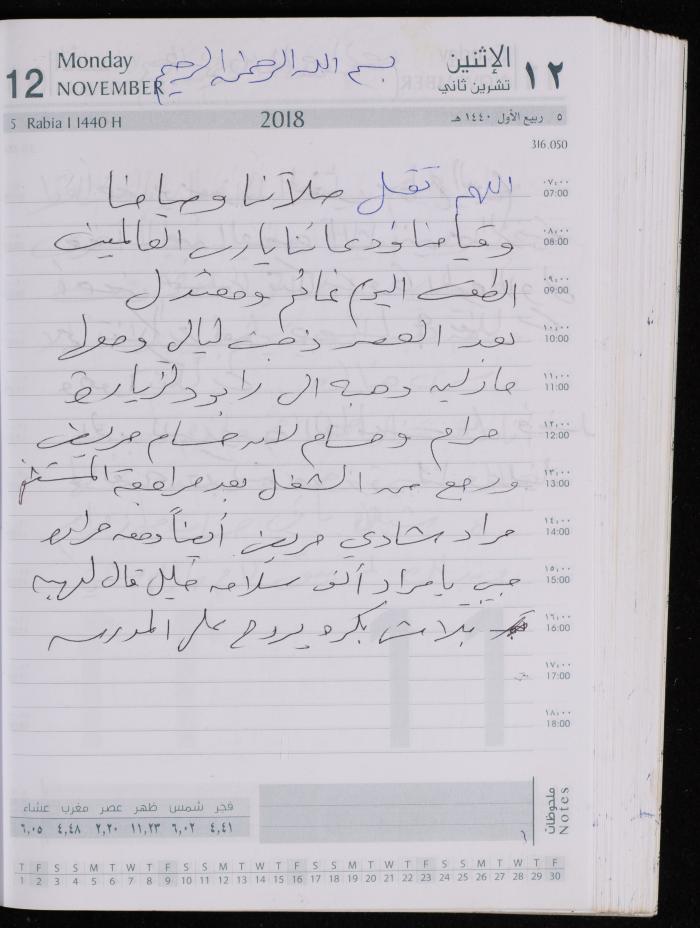 Monday
12 NOVEMBER
بسم الله الرحمن الرحيم
الإثنين
تشرين ثاني ١٢
5 Rabia I 1440 H
2018
٥ ربيع الأول ١٤٤٠ هـ
316.050
اللهم تقبل صلاتنا وصيامنا
٠٧:٠٠
07:00
وقيامنا ودعائنا يارب العالمين
٠٨:٠٠
08:00
الطقس اليوم غائم ومعتدل
٠٩:٠٠
09:00
بعد العصر ذهبت ليالي ومعها
١٠:٠٠
10:00
الى لزيارة
١١:٠٠
11:00
مرام وحسام لانه حسام مريض
١٢:٠٠
12:00
ورجع من الشغل بعد مراجعة المستشفى
١٣:٠٠
13:00
مراد شادي مريض أيضاً ومعه حراره
١٤:٠٠
14:00
حبيبي يا مراد ألف سلامه خليل قال لهبه
١٥:٠٠
15:00
بلاش بكره يروح على المدرسه
١٦:٠٠
16:00
١٧:٠٠
17:00
١٨:٠٠
18:00
ملحوظات
Notes
فجر شمس ظهر عصر مغرب عشاء
٤,٤١ ٦,٠٢ ١١,٢٣ ٢,٢٠ ٤,٤٨ ٦,٠٥
T F S S M T W T F S S M T W T F S S M T W T F S S M T W T F
1 2 3 4 5 6 7 8 9 10 11 12 13 14 15 16 17 18 19 20 21 22 23 24 25 26 27 28 29 30